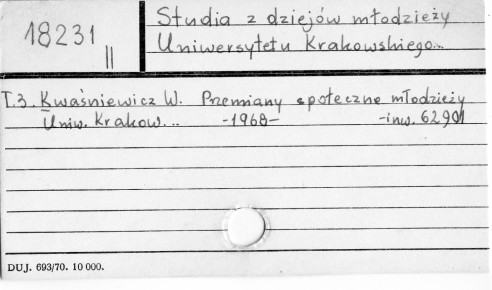 18231
II
Studia z dziejów młodzieży
Uniwersytetu Krakowskiego...
T.3. Kwaśniewicz W. Przemiany społeczne młodzieży
Uniw. Krakow... -1968- -inw. 62901
DUJ. 693/70. 10 000.